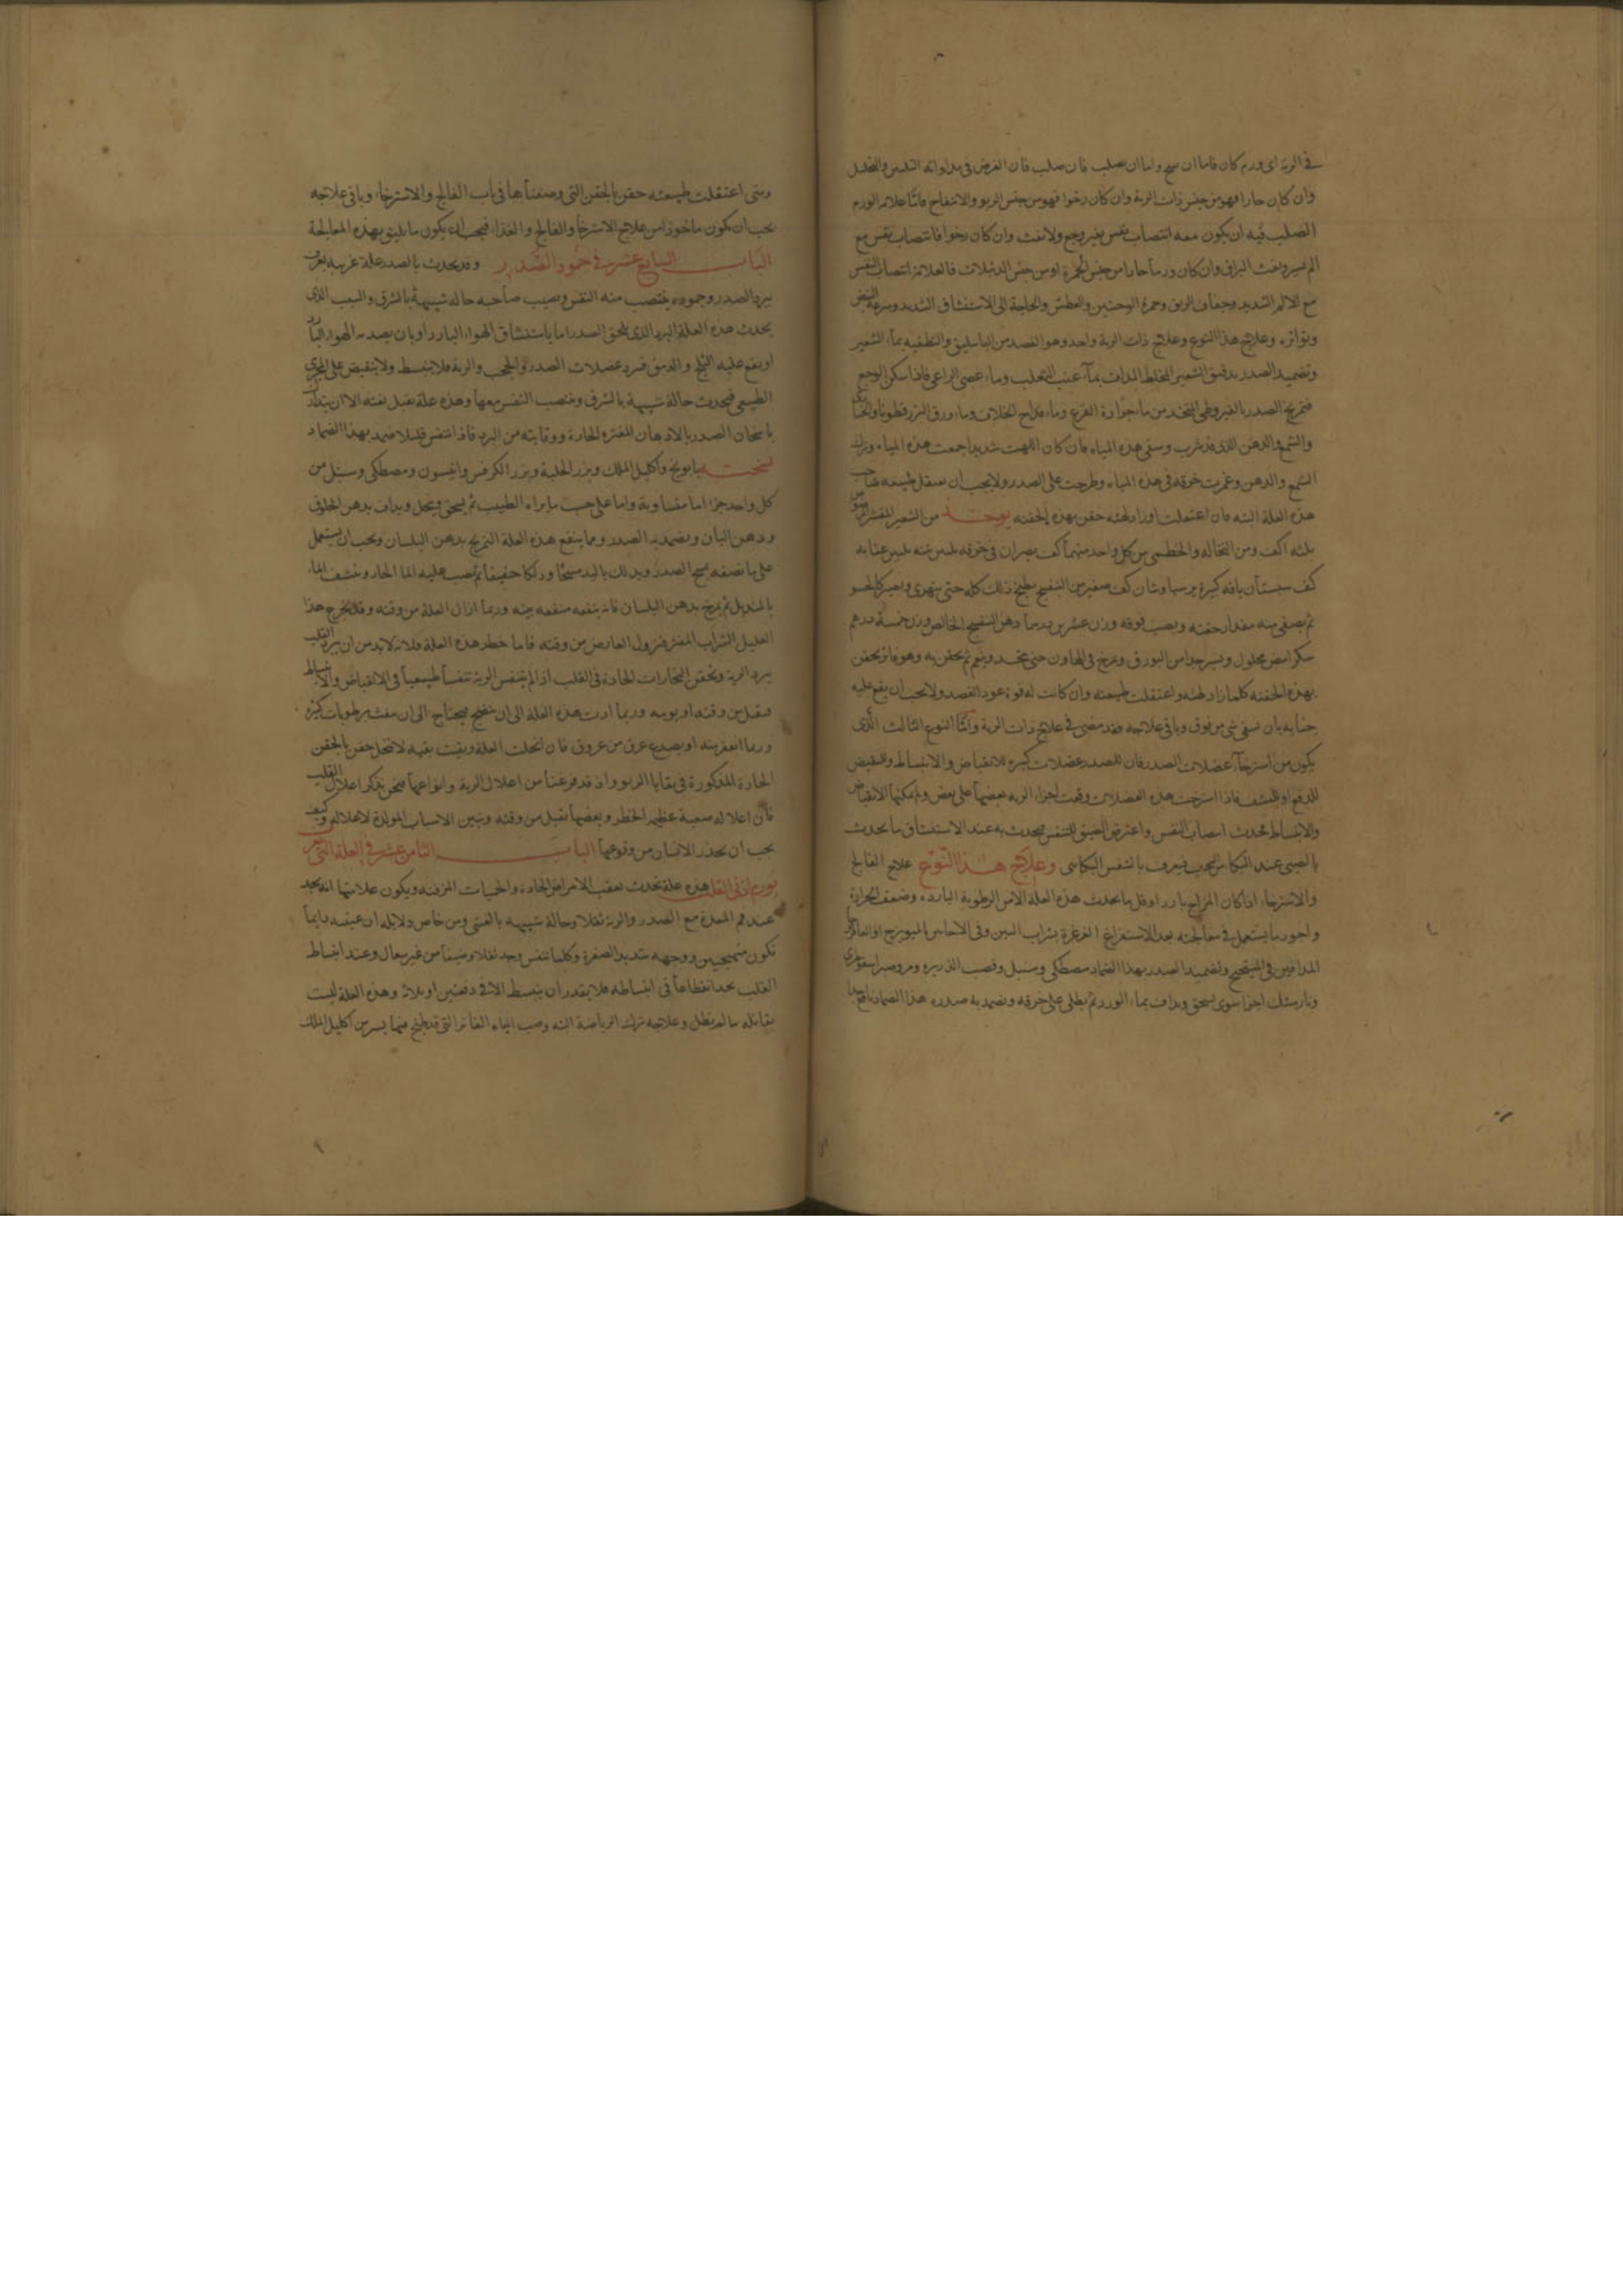 في الرية اى ورم كان فاما ان واما ان يصلب فان صلب فان الغرض فى مداواته التليين والتحليل
وان كان حارا فهو من جنس ذات الرية وان كان رخوا فهو من جنس الربو والانتفاخ فامّا علامة الورم
الصلب فيه ان يكون معه انتصاب نفس بغير وجع ولا نفث وان كان رخوا فانتصاب نفس مع
الم يسير ونفث البزاق وان كان ورما حارا من جنس الحمرة او من جنس الدبيلات فالعلامة انتصاب النفس
مع الالم الشديد وجفاف الريق وحمرة الوجنتين والعطش والحاجة الى الاستنشاق الشديد وسرعة النبض
وتواتره وعلاج هذا النوع وعلاج ذات الرية واحد وهو الفصد من الباسليق والتطفيه بماء الشعير
وتضميد الصدر بدقيق الشعير المخلط المداف بماء عنب الثعلب وماء عصى الراعى فاذا سكن الوجع
فتمريخ الصدر بالقيروطى المتخذ من ماء جرادة القرع وماء الخلاف وماء ورق البزرقطونا
والشمع والدهن الذى قد شرب وسقى هذه المياه فان كان اللهيب شديدا جمعت هذه المياه وترك
الشمع والدهن وغمرت خرقة فى هذه المياه وطرحت على الصدر ولا يجب ان تعتقل طبيعه صاحب
هذه العلة البته فان اعتقلت حقن بهذه الحقنه يوخذ من الشعير المقشر
ثلثه اكف ومن النخاله والخطمى من كل واحد منهما كف يصران فى خرقه
كف سبستان باقه كبيرة برسياوشان كف صغير من البنفسج يطبخ ذلك كله حتى يتهرى ويصير كالحسو
ثم يصفى منه مقدار حقنه ويصب فوقه وزن عشرين درهما دهن البنفسج الخالص وزن خمسة دراهم
سكر ابيض محلول ويسير جدا من البورق ويمرخ فى الهاون حتى ثم يحقن به وهو فاتر يحقن
بهذه الحقنه كلما زاد واعتقلت طبيعته وان كانت له قوة عود الفصد ولا يجب ان يقع عليه
بان سقى شى من فوق وباقى علاجه فقد مضى فى علاج ذات الرية وامّا النوع الثالث الّذى
يكون من استرخاء عضلات الصدر فان للصدر عضلات كبيره للانقباض والانبساط
فاذا استرخت هذه العضلات وقعت اجزاء الريه بعضها على بعض ولم يمكنها الانقباض
والانبساط فحدث انتصاب النفس واعترض الضيق للتنفس فيحدث به عند الاستنشاق ما يحدث
بالصبى عند البكاء ويعرف بالنفس البكائى وعلاج هذا النّوع علاج الفالج
والاسترخاء اذا كان المزاج باردا وقل ما يحدث هذه العلة الا من الرطوبة البارده وضعف الحرارة
واجود ما يستعمل فى معالجته بعد الاستفراغ الغرغرة بشراب التين وفى الاحايين بالميويزج
المدافين فى الميفختج وتضميد الصدر بهذا الضماد مصطكى وسنبل وقصب الذريره ومر وصبر اسقوطرى
ونارمشك اجزا سوى يسحق ويداف بماء الورد ثم يطلى على خرقه ويضمد به صدره هذا الضماد نافع جدا
ومتى اعتقلت طبيعته حقن بالحقن التى وصفناها فى باب الفالج والاسترخاء وباقى علاجه
يجب ان يكون ماخوذا من علاج الاسترخا والفالج والغذاء فيجب ان يكون ما يليق بهذه المعالجة
الباب السابع عشر في جمود الصّدر وقد يحدث بالصدر علة غريبه تعرف
ببرد الصدر وجموده ينتصب منه النفس ويصيب صاحبه حاله شبيهة بالشرق والسبب الذى
يحدث هذه العلة البرد الذى يلحق الصدر اما باستنشاق الهواء البارد او بان يصدمه الهواء البارد
او يقع عليه الثلج والدمق فيبرد عضلات الصدر والحجب والرية فلا ينبسط ولا ينقبض على المجرى
الطبيعى فيحدث حالة شبيهة بالشرق وينتصب النفس معها وهذه علة تقتل بغته الا ان يتدارك
باسخان الصدر بالادهان المفتره الحارة ووقايته من البرد فاذا تنفس قليلا ضمد بهذا الضماد
نسخته بابونج واكليل الملك وبزر الحلبة وبزر الكرفس وانيسون ومصطكى وسنبل من
كل واحد جزء اما متساوية واما على حسب ما يراه الطبيب ثم يسحق وينخل ويداف بدهن الخلوق
ودهن البان ويضمد به الصدر ومما ينفع هذه العلة التمريخ بدهن البلسان ويجب ان يستعمل
على ما نصفه يمسح الصدر ويدلك باليد مسحًا ودلكا خفيفا ثم يصب عليه الما الحار وينشف الماء
بالمنديل ثم يمرخ بدهن البلسان فانه ينفعه منفعه بينه وربما ازال العلة من وقته وقد يجرع هذا
العليل الشراب المفتر فيزول العارض من وقته فاما خطر هذه العلة فلانه لا بد من ان يبرد القلب
ببرد الرية ويحتقن البخارات الحادة فى القلب اذا لم يتنفس الرية تنفسا طبيعيا فى الانقباض والانبساط
فيقتل من وقته او يومه وربما ادت هذه العلة الى ان ينفتح فيحتاج الى ان ينفث رطوبات كثيره
وربما انفجر منه او يصدع عرق من عروق فان انحلت العلة وبقيت بقيه لا تنحل حقن بالحقن
الحادة المذكورة فى بقايا الربو واذ قد فرغنا من اعلال الرية وانواعها فنحن نذكر اعلال القلب
فان اعلاله صعبة عظيم الخطر وبعضها تقتل من وقته ونبين الاسباب المولدة لاعلاله وكيف
يجب ان يحذر الانسان من وقوعها الباب الثامن عشر في العلة التى تعرف
بورم اذنى القلب هذه علة تحدث بعقب الامراض الحادة والحميات المزمنه ويكون علامتها انه يجد
عند فم المعدة مع الصدر والرية ثقلا وحالة شبيهه بالغشى ومن خاص دلايله ان عينيه دايما
تكون متهيجين ووجهه شديد الصفرة وكلما تنفس وجد ثقلا وضيقا من غير سعال وعند انبساط
القلب يجد انقطاعا فى انبساطه فلا يقدر ان ينبسط الا فى دفعتين او ثلاث وهذه العلة ليست
بقاتله ما لم يطل وعلاجه ترك الرياضة البته وصب المياه الفاترة التى قد طبخ فيها يسير من اكليل الملك